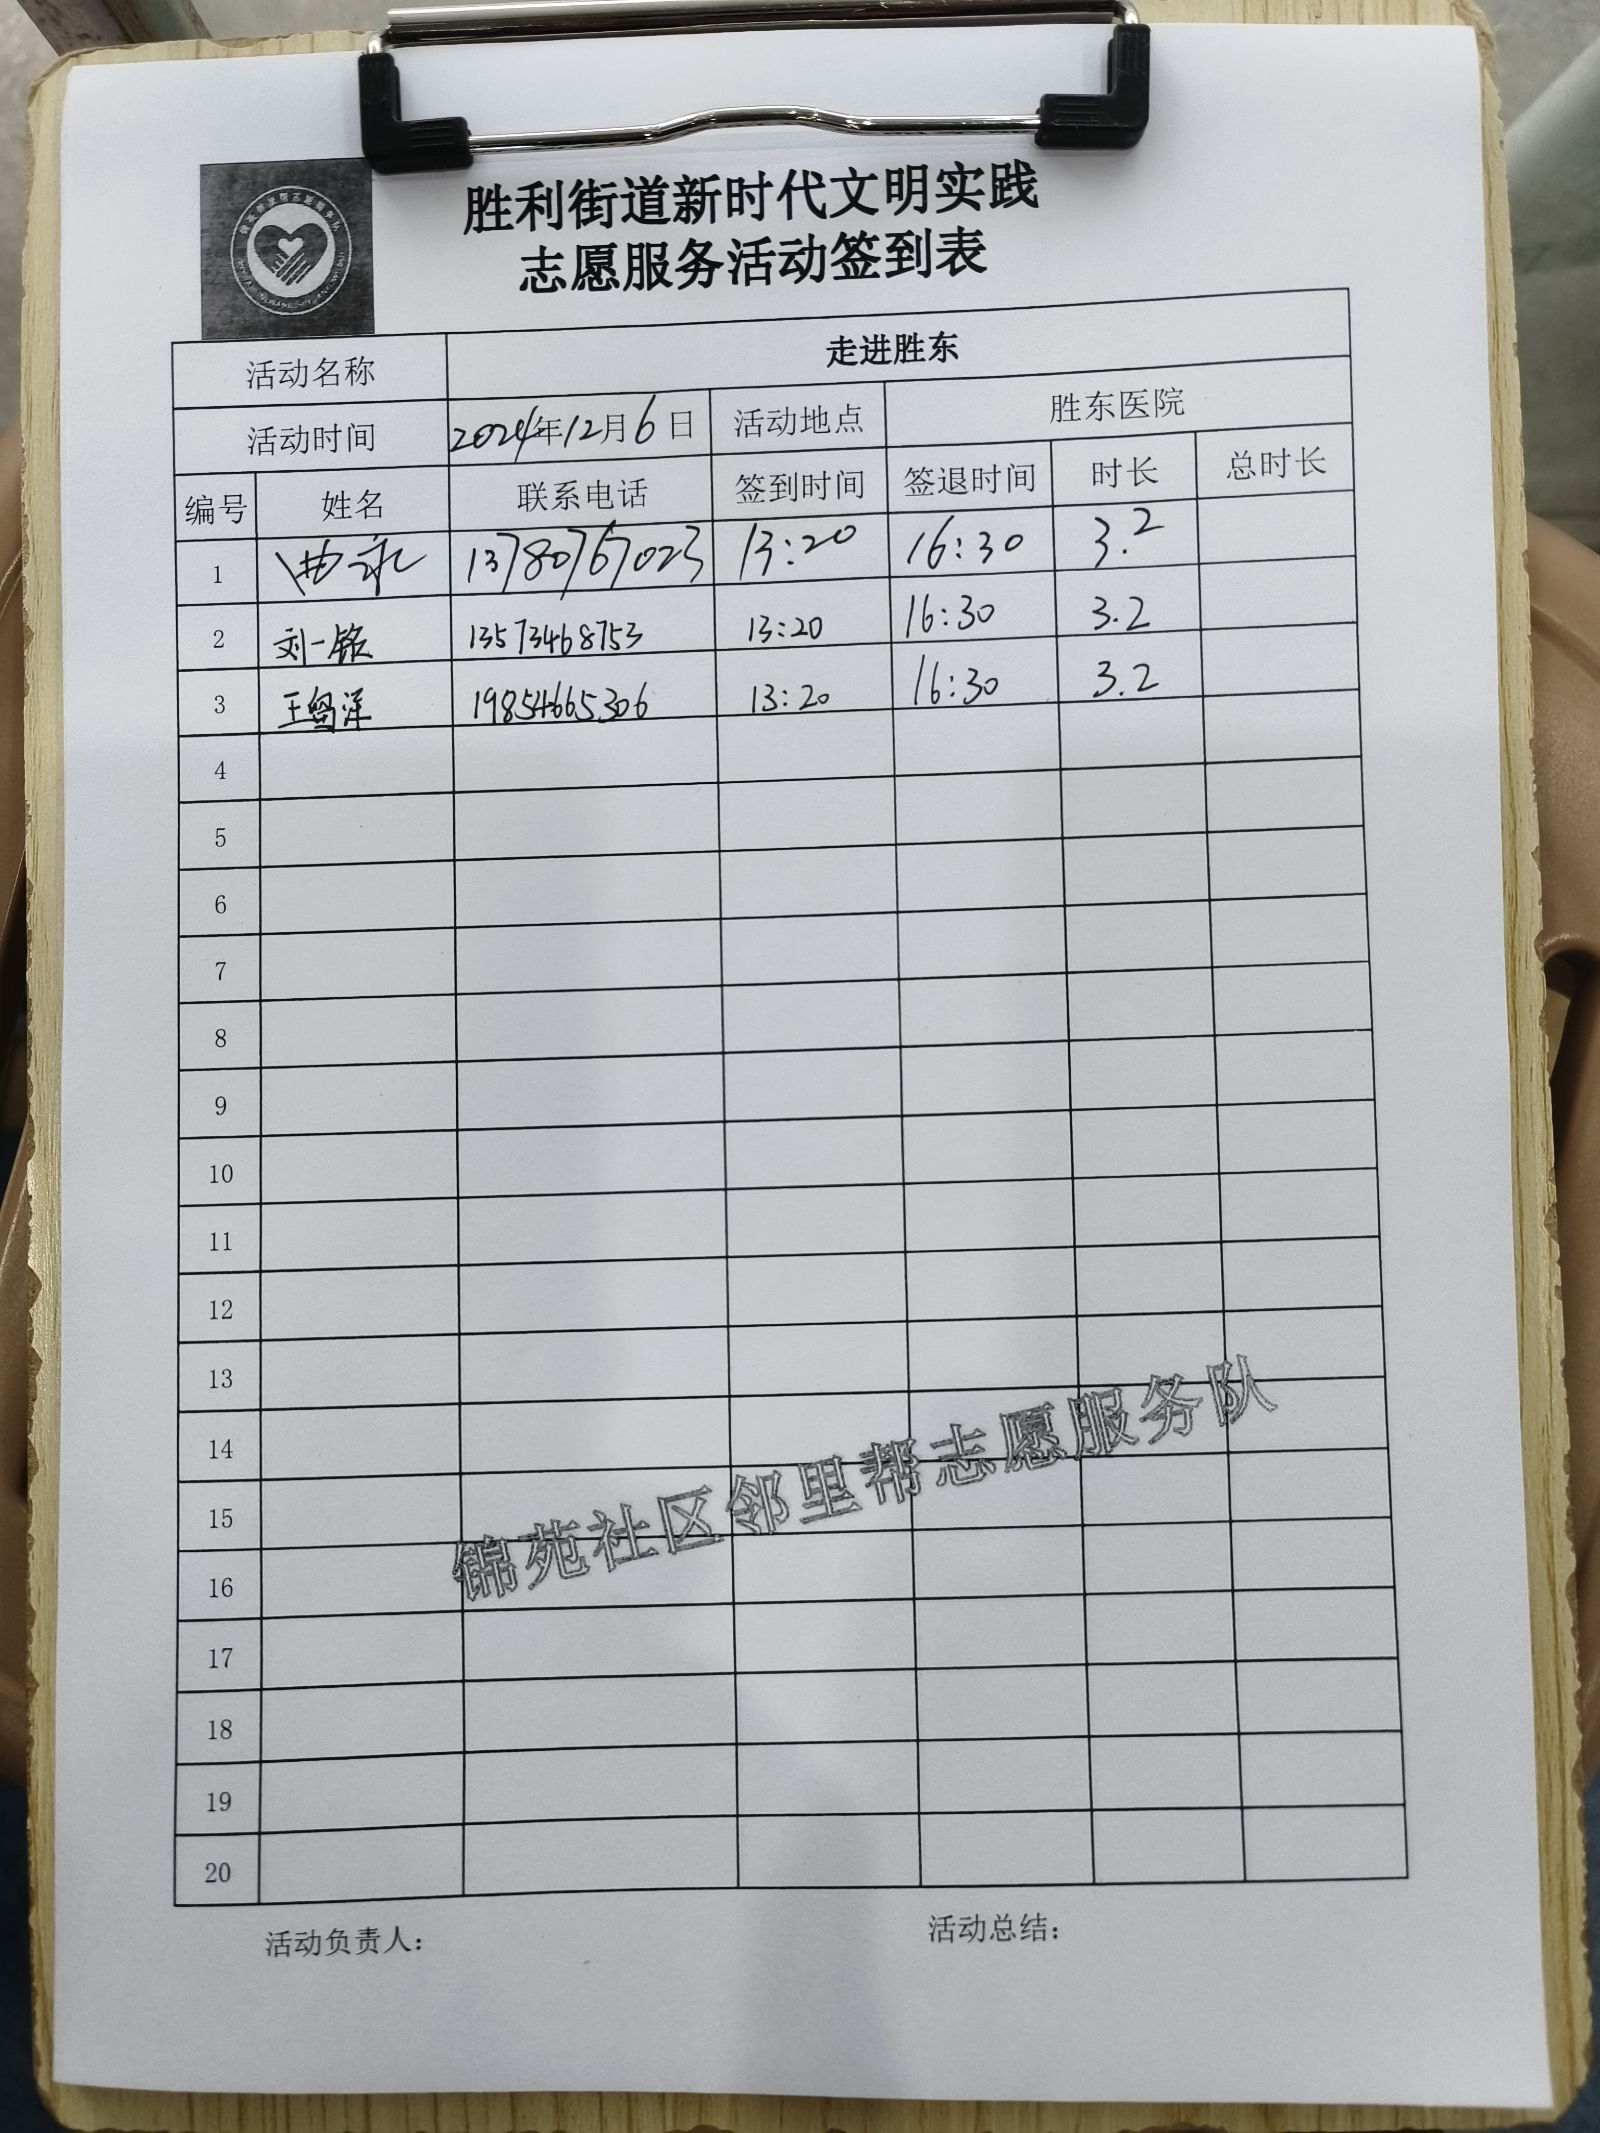 胜利街道新时代文明实践
志愿服务活动签到表
活动名称 走进胜东
活动时间 2024年12月6日 活动地点 胜东医院
编号 姓名 联系电话 签到时间 签退时间 时长 总时长
1 13780767023 13:20 16:30 3.2
2 刘一铭 13573468753 13:20 16:30 3.2
3 王 洋 19854665306 13:20 16:30 3.2
4
5
6
7
8
9
10
11
12
13
14
15
16
17
18
19
20
锦苑社区邻里帮志愿服务队
活动负责人： 活动总结：